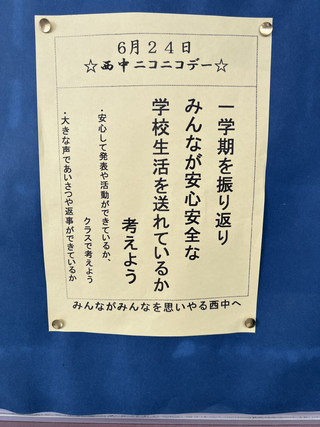 6月24日
☆西中ニコニコデー☆
一学期を振り返り
みんなが安心安全な
学校生活を送れているか
考えよう
・安心して発表や活動ができているか、
クラスで考えよう
・大きな声であいさつや返事ができているか
みんながみんなを思いやる西中へ